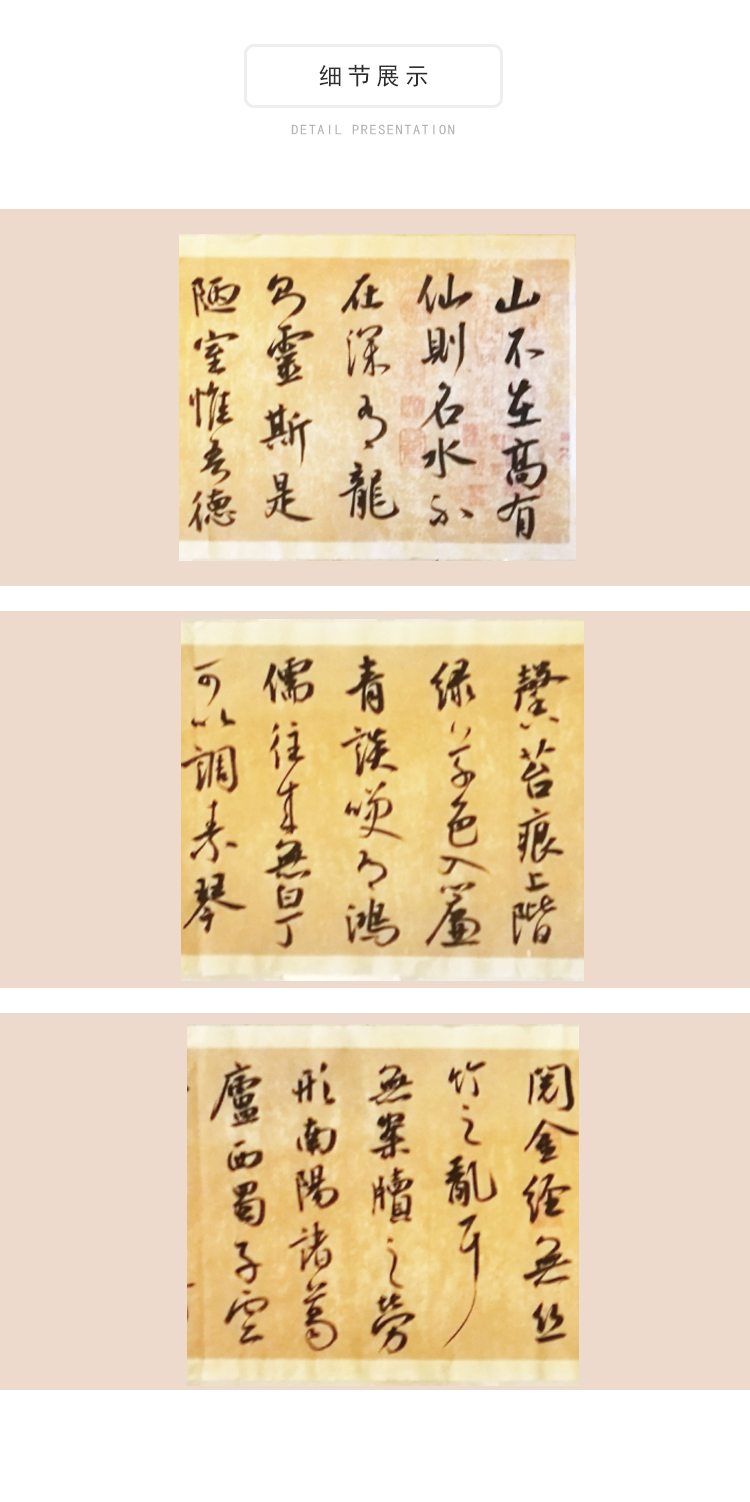 细节展示
DETAIL PRESENTATION
山不在高有
仙則名水不
在深有龍
則靈斯是
陋室惟吾德
馨苔痕上階
绿草色入簾
青談笑有鴻
儒往来無白丁
可以調素琴
閱金経無丝
竹之亂耳
無案牘之勞
形南陽諸葛
廬西蜀子雲